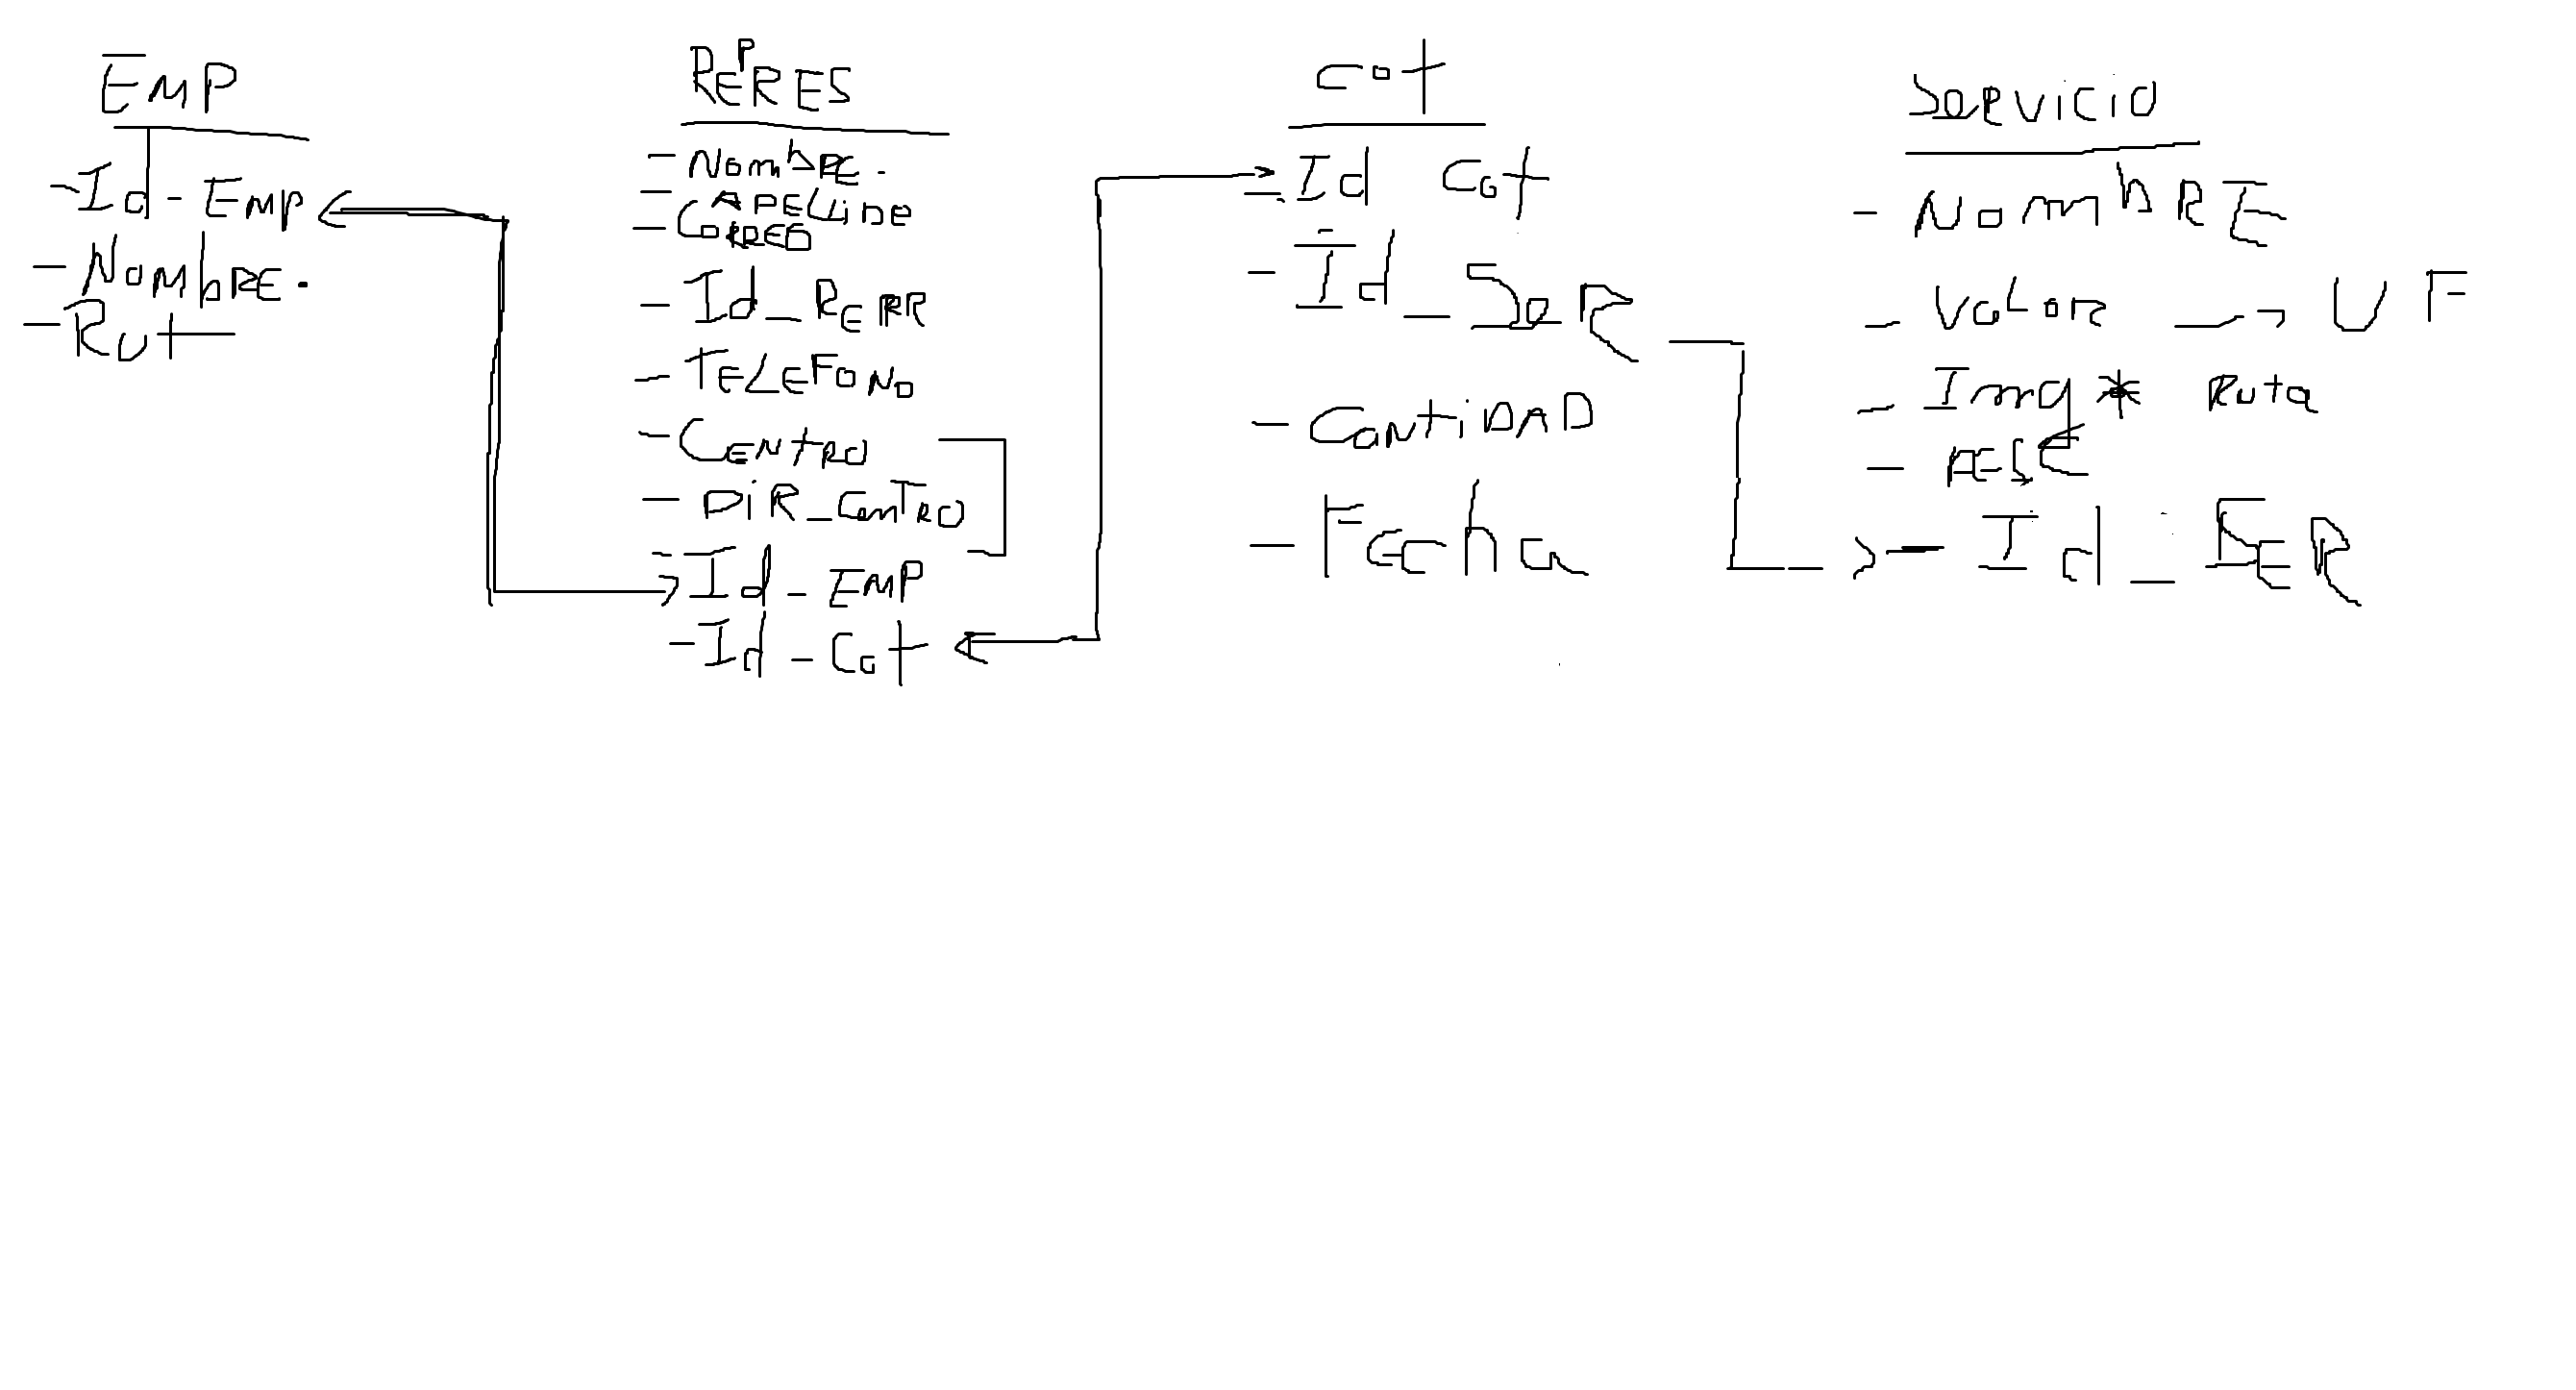 EMP
- Id - EMP
- NombRE.
- Rut
REPRES
- NombRE.
- APELLiDO
- CORREO
- Id_REPR
- TELEFONO
- CENtRO
- DiR_CentRO
- Id - EMP
- Id - Cot
Cot
- Id Cot
- Id_SeR
- CantiDAD
- Fecha
SERVicio
- NombRE
- ValoR → UF
- Img * Ruta
- DESC
- Id_SER